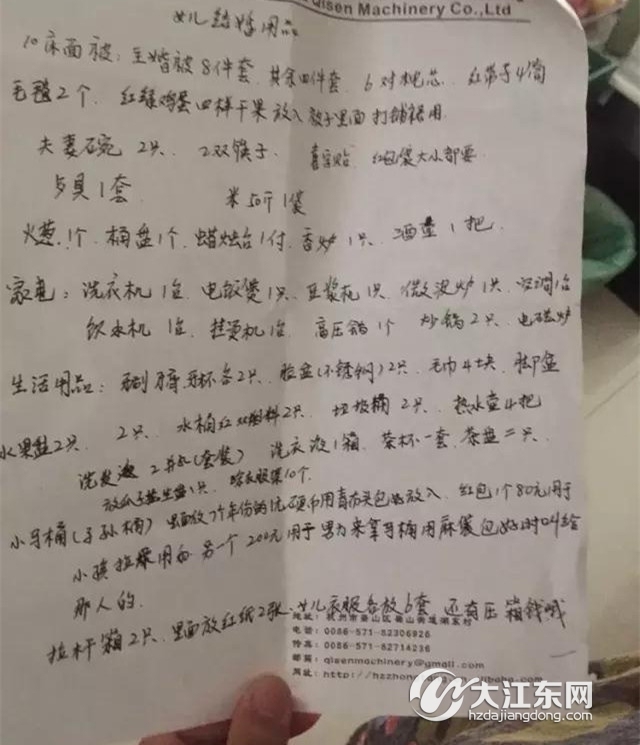 Qisen Machinery Co.,Ltd
女儿结婚用品
10床面被: 主婚被8件套、其余四件套、6对枕芯、红带子4筒
毛毯2个、红绿鸡蛋四样干果放入被子里面打铺褥用
夫妻碗2只、2双筷子、喜字贴、红包袋大小都要
1套 米50斤1袋
火葱1个、桶盘1个、蜡烛台1付、香炉1只、酒壶1把
家电: 洗衣机1台、电饭煲1只、豆浆机1只、微波炉1只、空调1台
饮水机1台、挂烫机1台、高压锅1个 炒锅2只、电磁炉
生活用品: 牙刷牙膏牙杯各2只、脸盆(不锈钢)2只、毛巾4块、脚盆
水果盘2只、2只、水桶红双塑料2只、垃圾桶2只、热水壶4把
洗发液2瓶(套装) 洗衣液1箱、茶杯一套、茶盘二只、
10个
小马桶(子孙桶) 里面放7个年份的硬币用青布夹包好放入、红包1个80元用于
小孩拉尿用的 另一个200元用于男方来拿马桶用麻袋包好时叫给
那人的.
拉杆箱2只、里面放红纸2张、女儿衣服各放6套、还有压箱钱哦
地址: 杭州市萧山区萧山街道湖东村
电话: 0086-571-82306926
传真: 0086-571-82714236
邮箱: qisenmachinery@gmail.com
网址: http://hzzhong alibaba.com
大江东网
hzdajiangdong.com